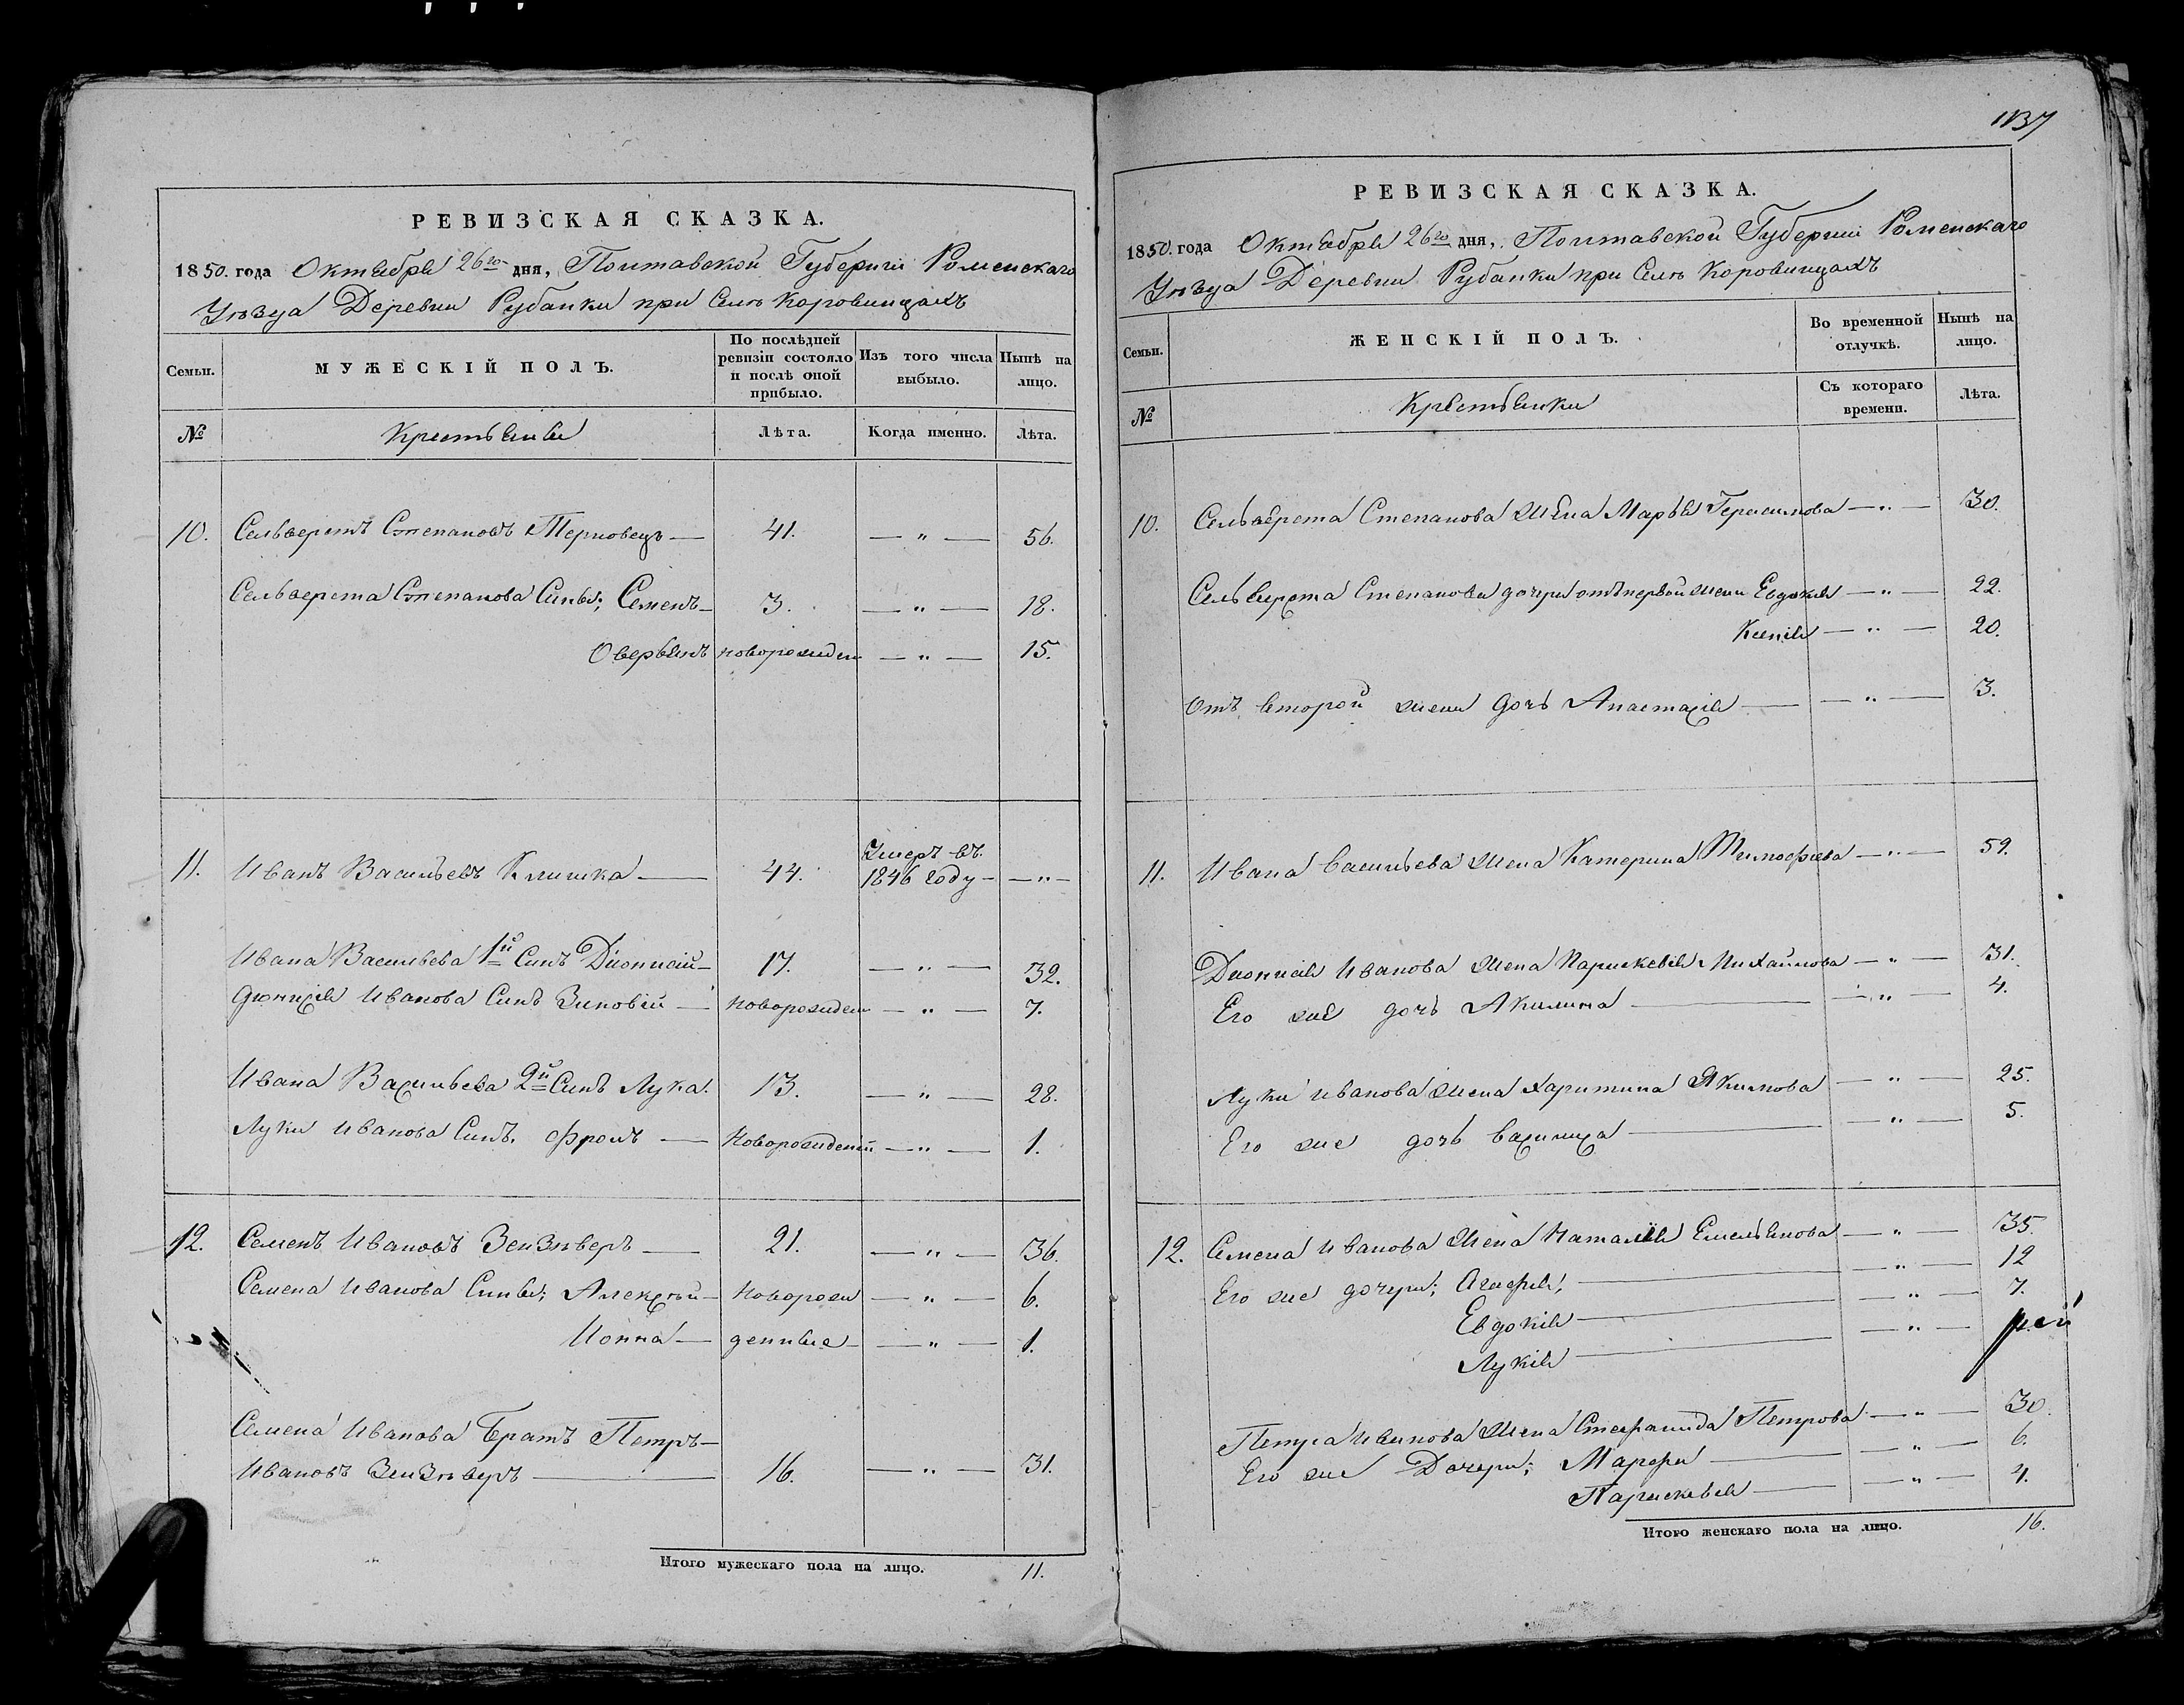 1137
РЕВИЗСКАЯ СКАЗКА.
1850. года Октября 26го дня, Полтавской Губернии Роменскаго
Уѣзда Деревни Рубанки при Селѣ Коровинцахъ
Семьи.
МУЖЕСКІЙ ПОЛЪ.
По послѣдней ревизіи состояло и послѣ оной прибыло.
Изъ того числа выбыло.
Нынѣ на лицо.
№
Крестьяне
Лѣта.
Когда именно.
Лѣта.
10. Сельверстъ Степановъ Терновецъ — 41. — „ — 56.
Сельверста Степанова Сыны; Семенъ — 3. — „ — 18.
Оверьянъ новорожден — „ — 15.
11. Иванъ Васильевъ Клишка — 44. Умеръ въ 1846 году — — „ —
Ивана Васильева 1й Синъ Дионисій — 17. — „ — 32.
Дионисія Иванова Синъ Зиновій — новорожден — „ — 7.
Ивана Васильева 2й Синъ Лука. 13. — „ — 28.
Луки Иванова Синъ. Фролъ — Новорожденій — „ — 1.
12. Семенъ Ивановъ Зензѣверъ — 21. — „ — 36.
Семена Иванова Сины; Алексѣй — Новорож — „ — 6.
Иопна — денные — — „ — 1.
Семена Иванова Братъ Петръ —
Ивановъ Зензѣверъ — 16. — „ — 31.
Итого мужескаго пола на лицо. 11.
РЕВИЗСКАЯ СКАЗКА.
1850. года Октября 26го дня, Полтавской Губернии Роменскаго
Уѣзда Деревни Рубанки при Селѣ Коровинцахъ
Семьи.
ЖЕНСКІЙ ПОЛЪ.
Во временной отлучкѣ.
Нынѣ на лицо.
№
Крестьянки
Съ котораго времени.
Лѣта.
10. Сельверста Степанова жена Марья Герасимова — „ — 30.
Сельверста Степанова дочери отъ первой жени Евдокія — „ — 22.
Ксенія — „ — 20.
Отъ второй жени дочь Анастасія — — „ — 3.
11. Ивана Васильева жена Катерина Тимофеева — „ — 59.
Дионисія Иванова жена Параскевія Михайлова — „ — 31.
Его же дочь Акилина — — „ — 4.
Луки Иванова жена Харитина Якимова — „ — 25.
Его же дочь Василиса — — „ — 5.
12. Семена Иванова жена Наталія Емельянова — „ — 35.
Его же дочери; Агафія; — — „ — 12
Евдокія — — „ — 7.
Лукія — — „ —
Петра Иванова жена Стефанида Петрова — „ — 30.
Его же Дочери; Марфа — — „ — 6.
Параскевія — — „ — 4.
Итого женскаго пола на лицо. 16.